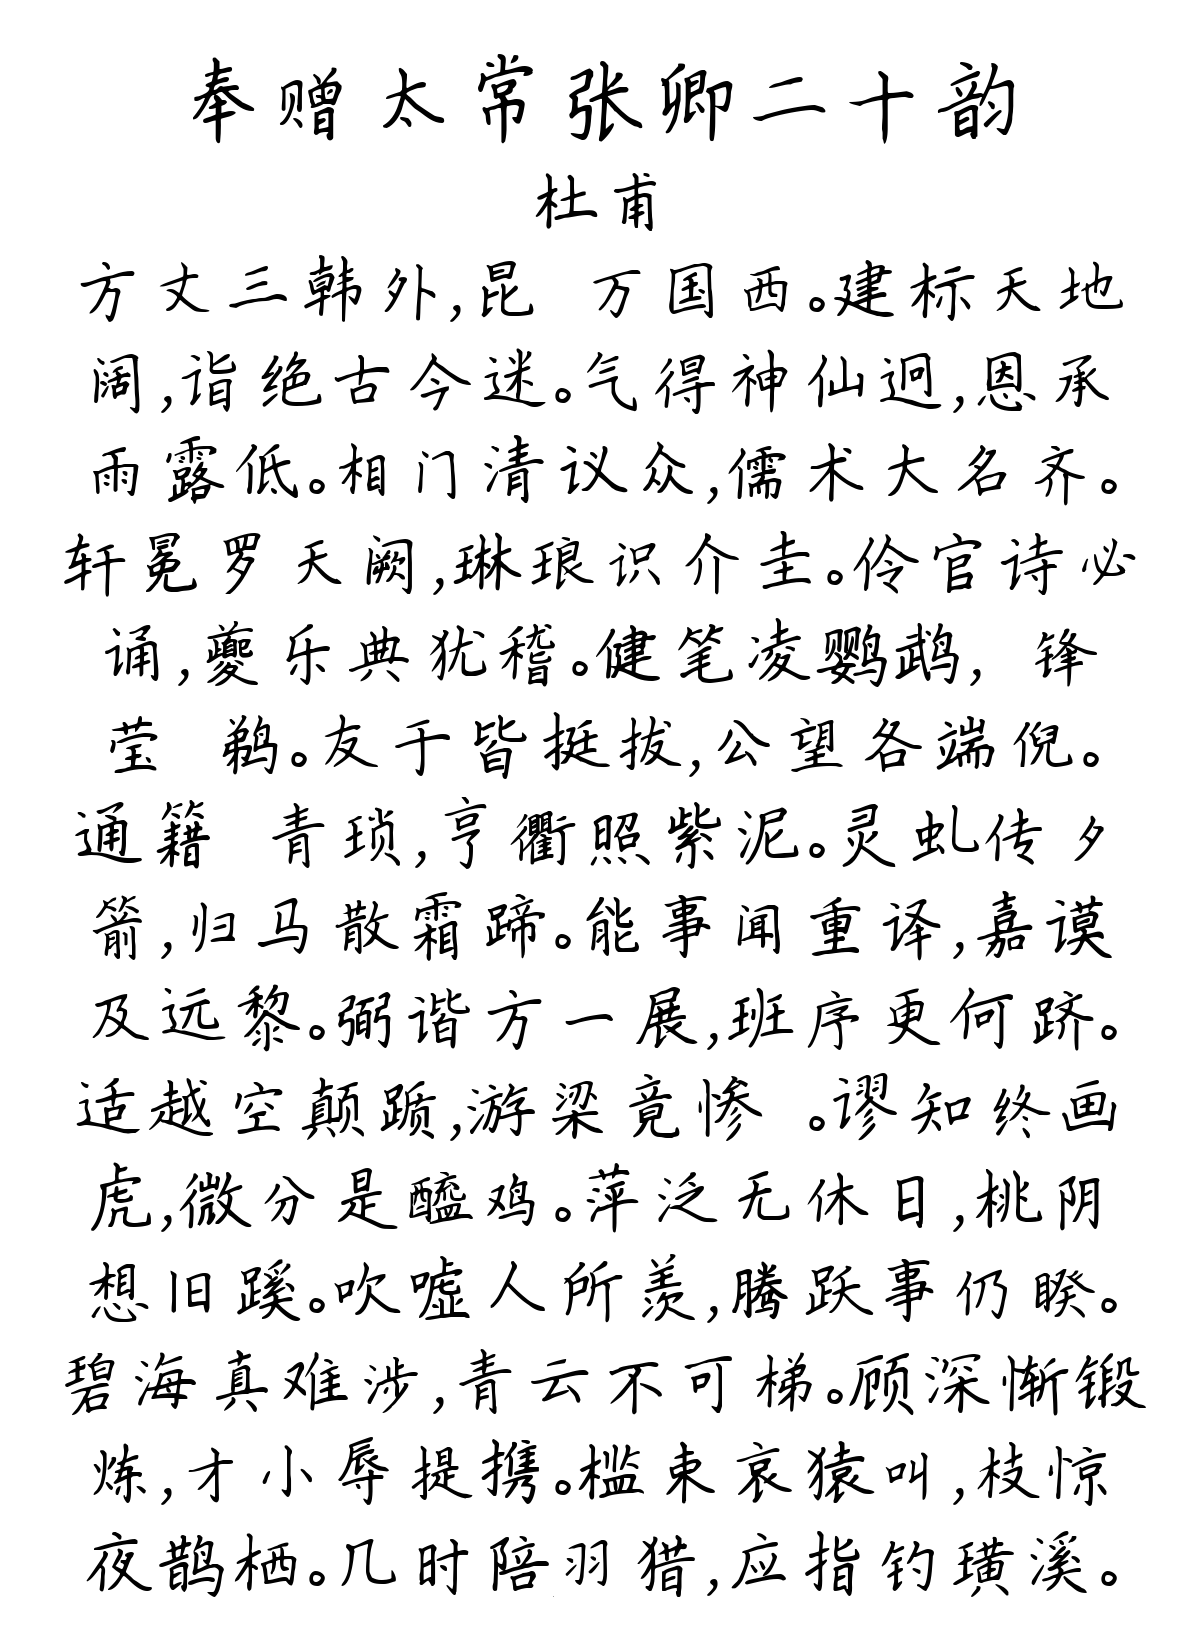 奉赠太常张卿二十韵
杜甫
方丈三韩外,昆 万国西。建标天地
阔,诣绝古今迷。气得神仙迥,恩承
雨露低。相门清议众,儒术大名齐。
轩冕罗天阙,琳琅识介圭。伶官诗必
诵,夔乐典犹稽。健笔凌鹦鹉, 锋
莹 鹈。友于皆挺拔,公望各端倪。
通籍 青琐,亨衢照紫泥。灵虬传夕
箭,归马散霜蹄。能事闻重译,嘉谟
及远黎。弼谐方一展,班序更何跻。
适越空颠踬,游梁竟惨 。谬知终画
虎,微分是醯鸡。萍泛无休日,桃阴
想旧蹊。吹嘘人所羡,腾跃事仍睽。
碧海真难涉,青云不可梯。顾深惭锻
炼,才小辱提携。槛束哀猿叫,枝惊
夜鹊栖。几时陪羽猎,应指钓璜溪。